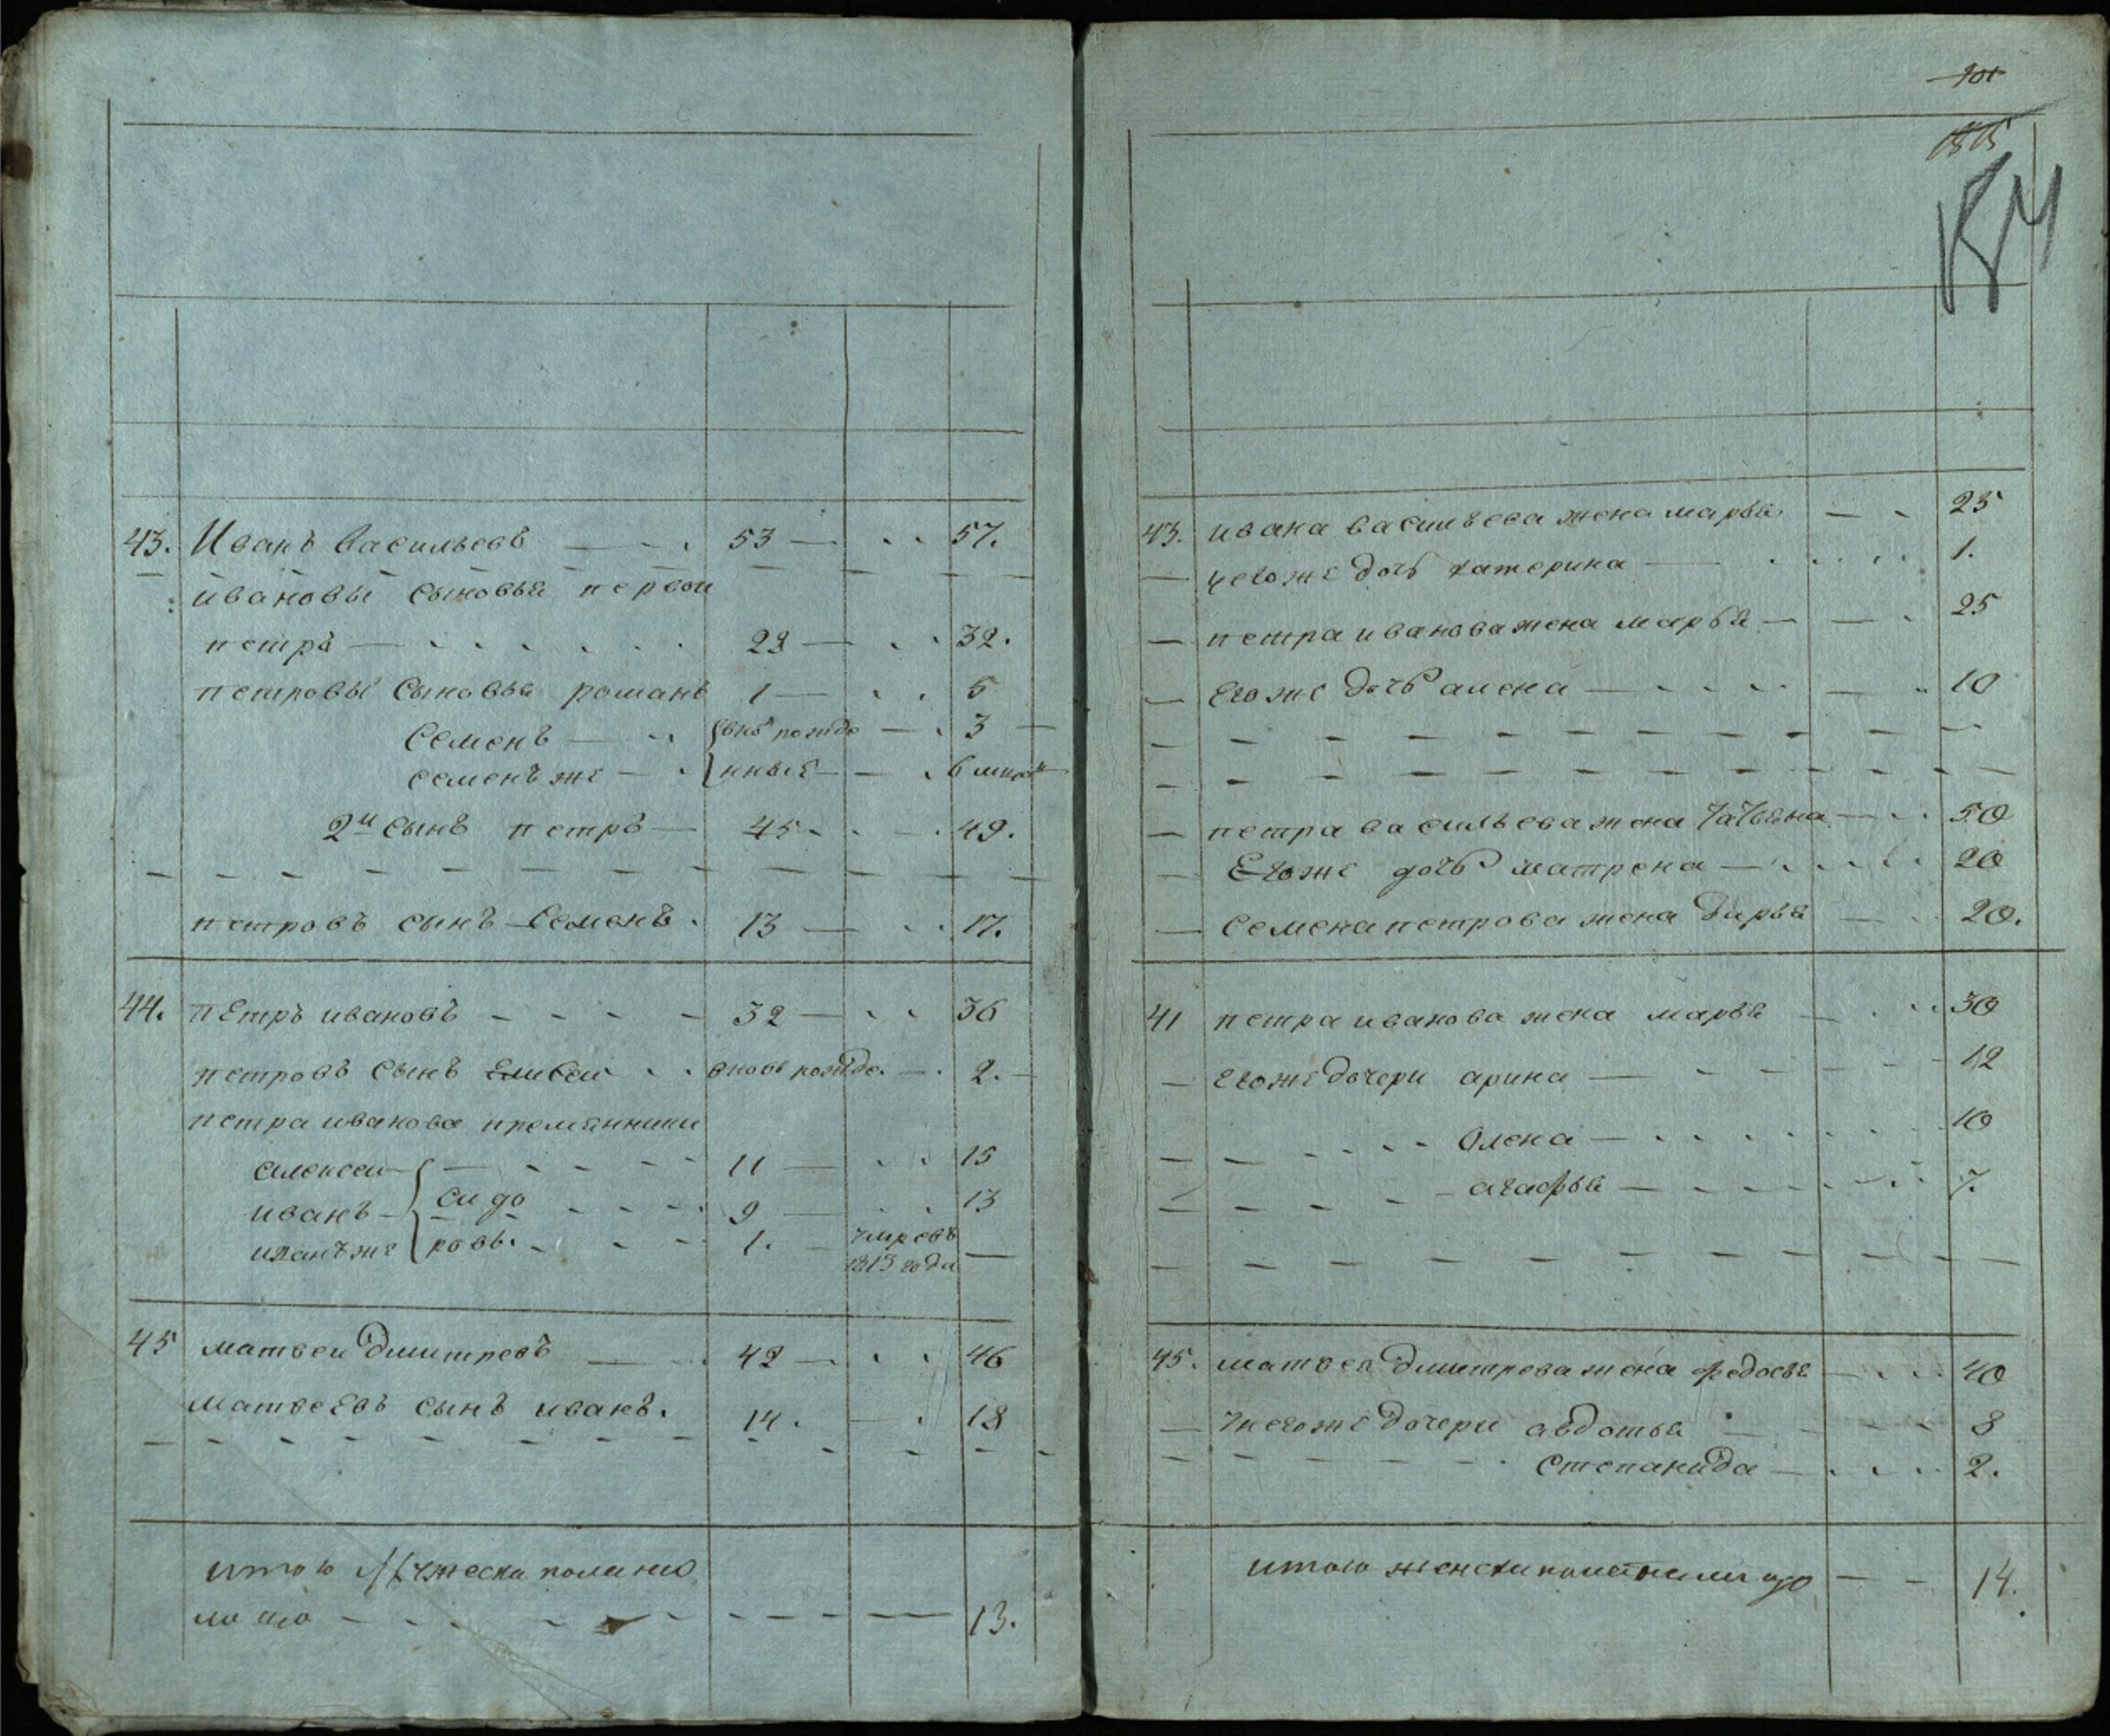 43. Иванъ Васильевъ 53 57.
ивановы сыновья первои
петръ 22 32.
петровы сыновья романъ 1 5
Семенъ вновь рожде 3
семенъ же нные 6
2й сынъ петръ 45 49.
петровъ сынъ Семенъ. 13 17.
44. петръ ивановъ 32 36
петровъ сынъ Елисеи вновь рожде. 2.
петра иванова племянники
алексеи 11 15
иванъ сидо 9 13
иванъ же ровы. 1. умре въ
1813 году
45 матвеи дмитревъ 42 46
матвеевъ сынъ иванъ. 14. 18
итого мужеска пола на
лицо 13.
101
1815
43. ивана васильева жена марья 25
у егоже дочь катерина 1.
петра иванова жена марья 25
Егоже дочь алена 10
петра васильева жена татьяна 50
Егоже дочь матрена 20
семена петрова жена дарья 20.
41 петра иванова жена марья 30
егоже дочери арина 12
Олена 10
агафья 7.
45. матвея дмитрева жена федосья 40
у негоже дочери авдотья 8
степанида 2.
итого женска пола налицо 14.